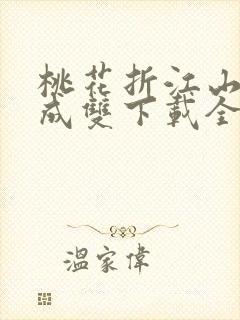 桃花折江山
成雙下載全
溫家偉